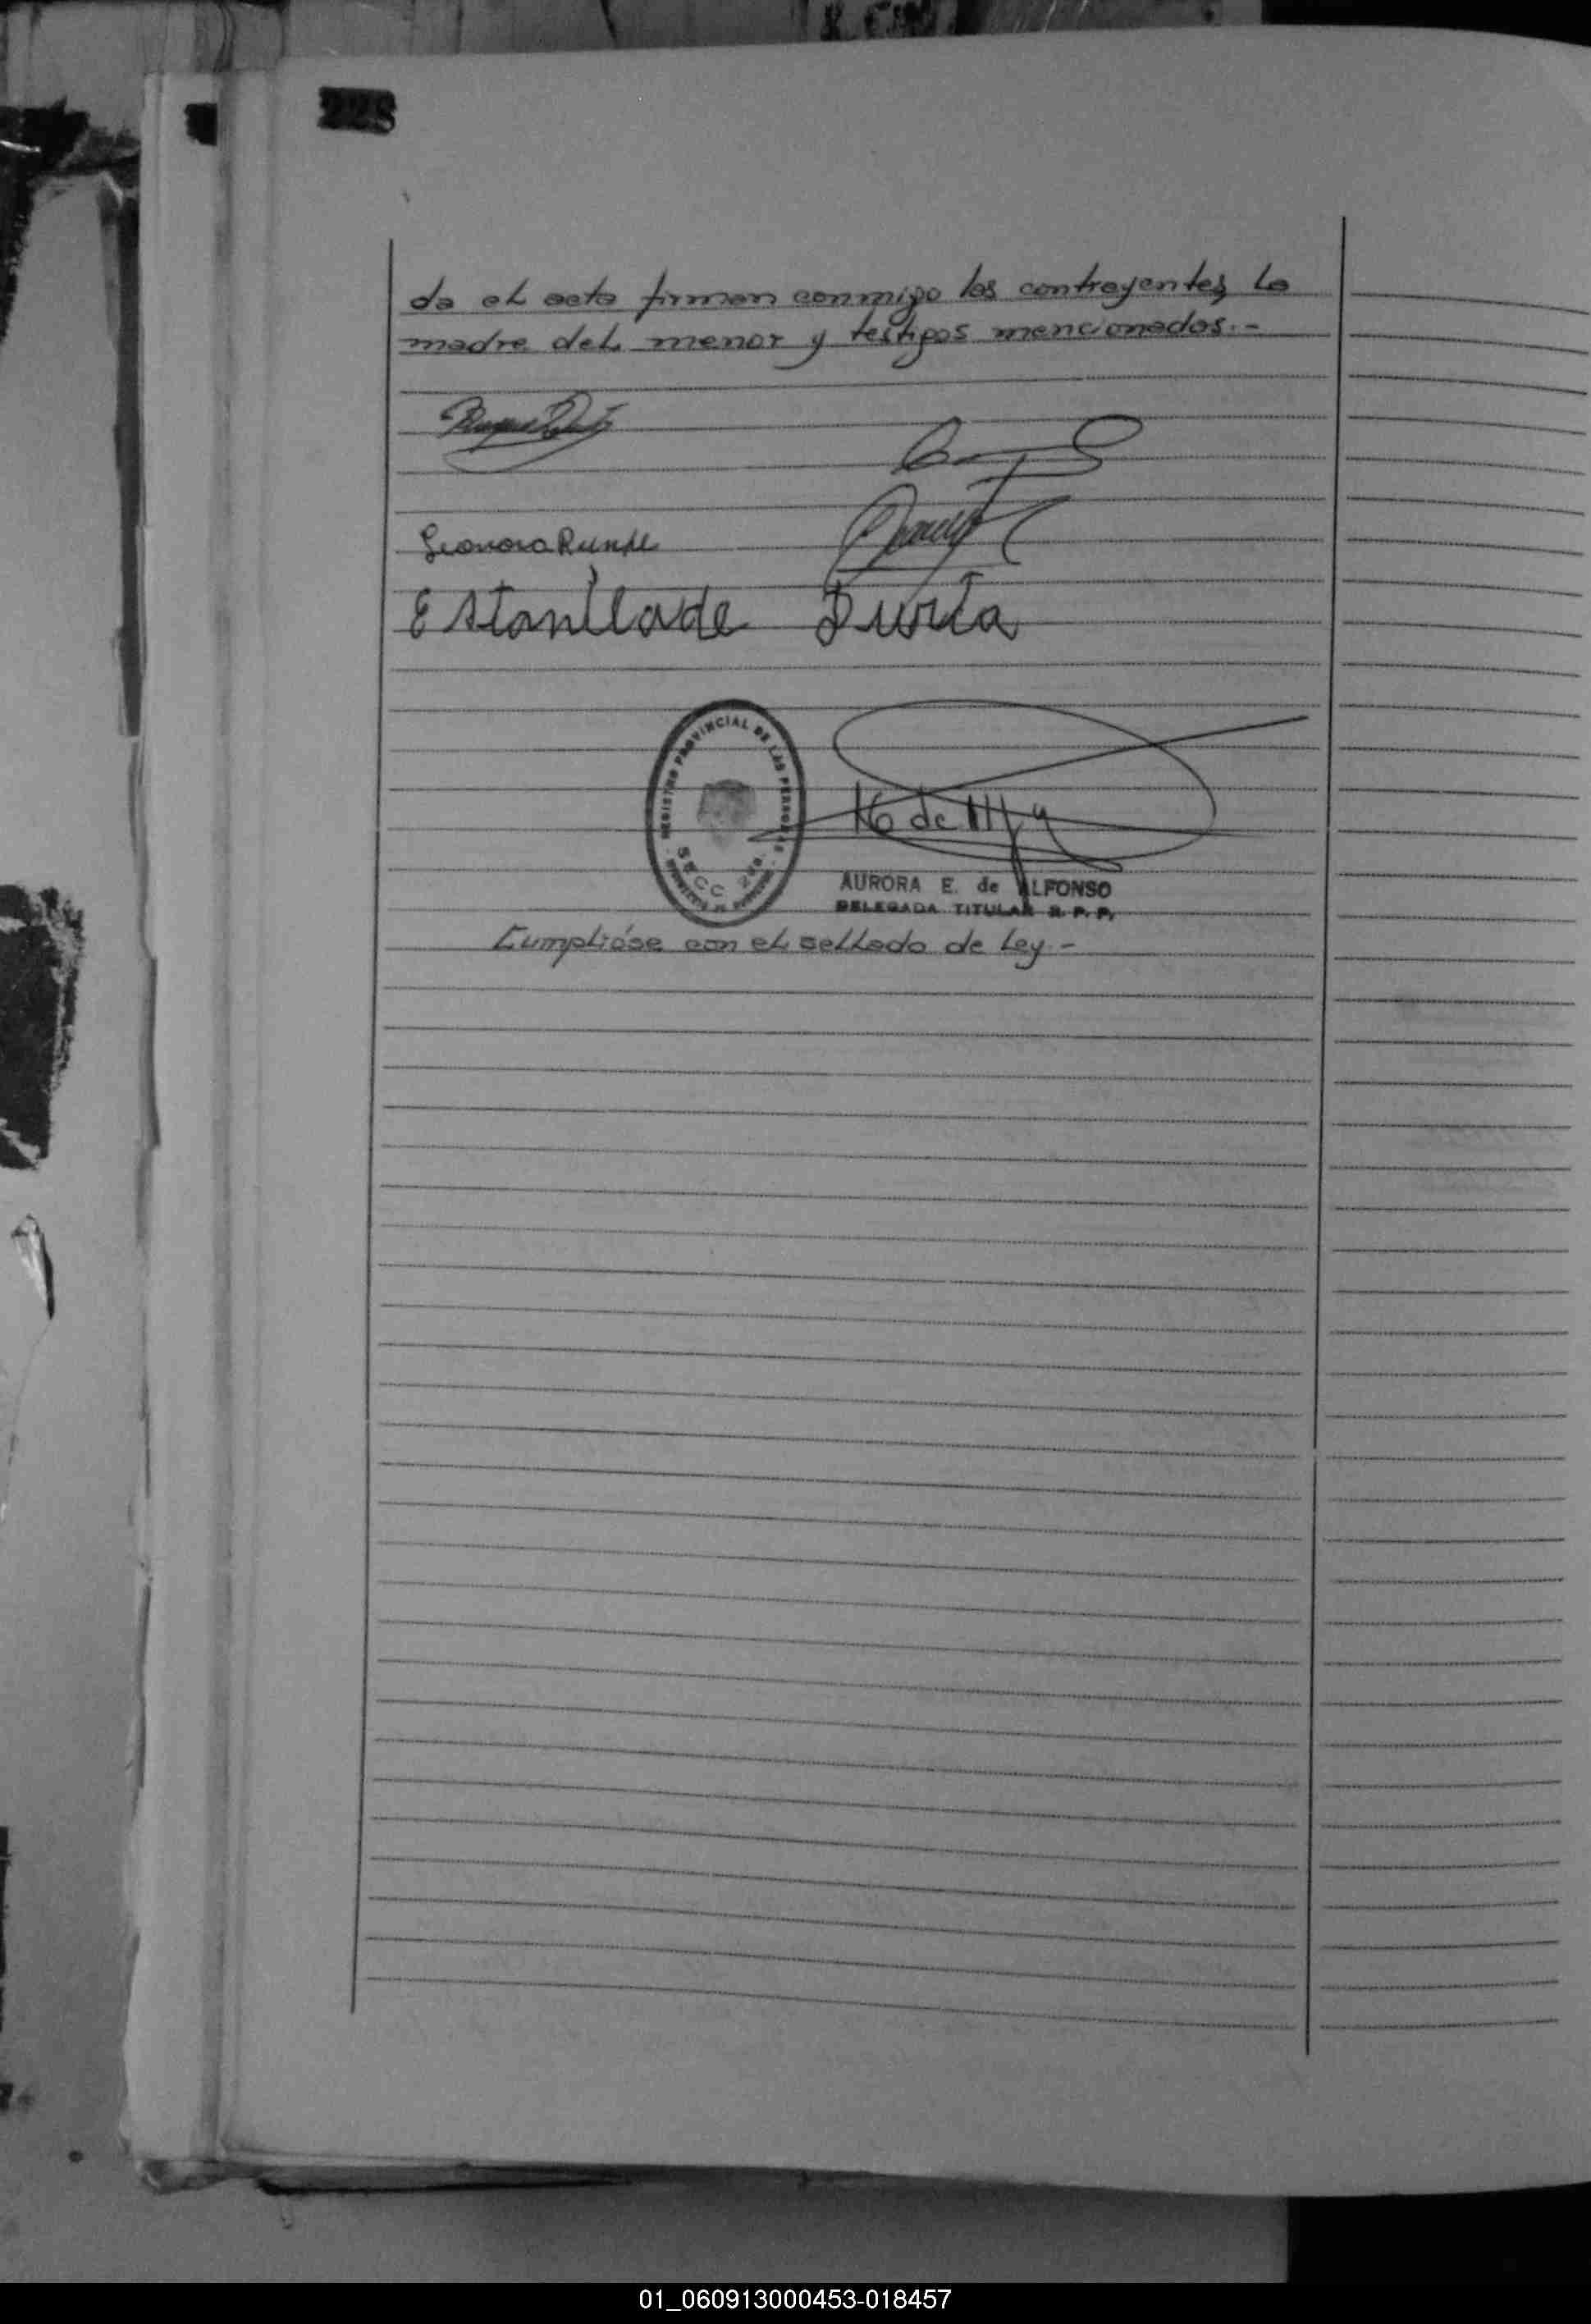 228
da el acta firman conmigo los contrayentes, la
madre del menor y testigos mencionados.-
Leonora
Estanilade Duria
REGISTRO PROVINCIAL DE LAS PERSONAS
SECC 2da.
AURORA E. de ALFONSO
DELEGADA TITULAR R. P. P.
Cumplióse con el sellado de Ley.-
01_060913000453-018457